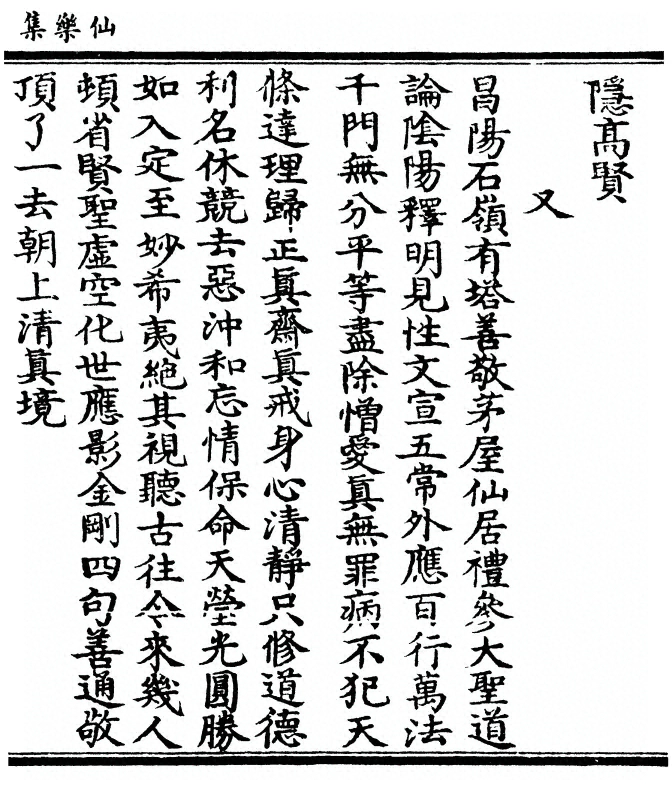 仙樂集
隱高賢
又
昌陽石嶺有塔善敬茅屋仙居禮參大聖道
論陰陽釋明見性文宣五常外應百行萬法
千門無分平等盡除憎愛眞無罪病不犯天
條達理歸正眞齋眞戒身心清靜只修道德
利名休競去惡沖和忘情保命天瑩光圓勝
如入定至妙希夷絕其視聽古往今來幾人
頓省賢聖虛空化世應影金剛四句善通敬
頂了一去朝上清眞境